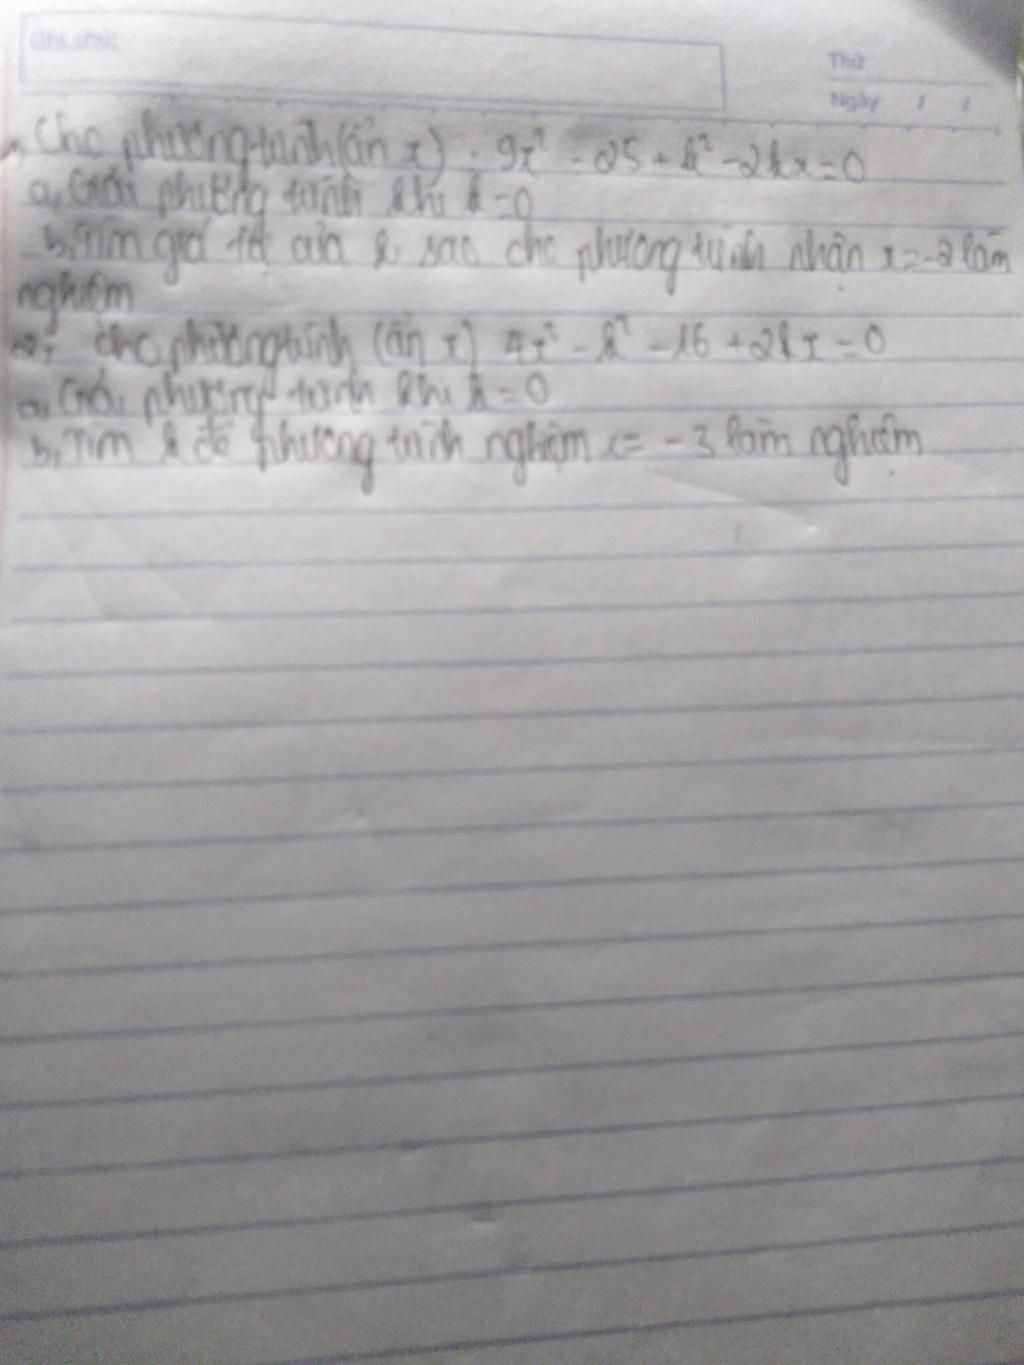 Ghi chú:
Thứ
Ngày / /
1, Cho phương trình (ẩn x) : 9x² - 25 + k² - 2kx = 0
a, Giải phương trình khi k = 0
b, Tìm giá trị của k sao cho phương trình nhận x = -2 làm
nghiệm
2, Cho phương trình (ẩn x) 4x² - k² - 16 + 2kx = 0
a, Giải phương trình khi k = 0
b, Tìm k để phương trình nghiệm x = -3 làm nghiệm